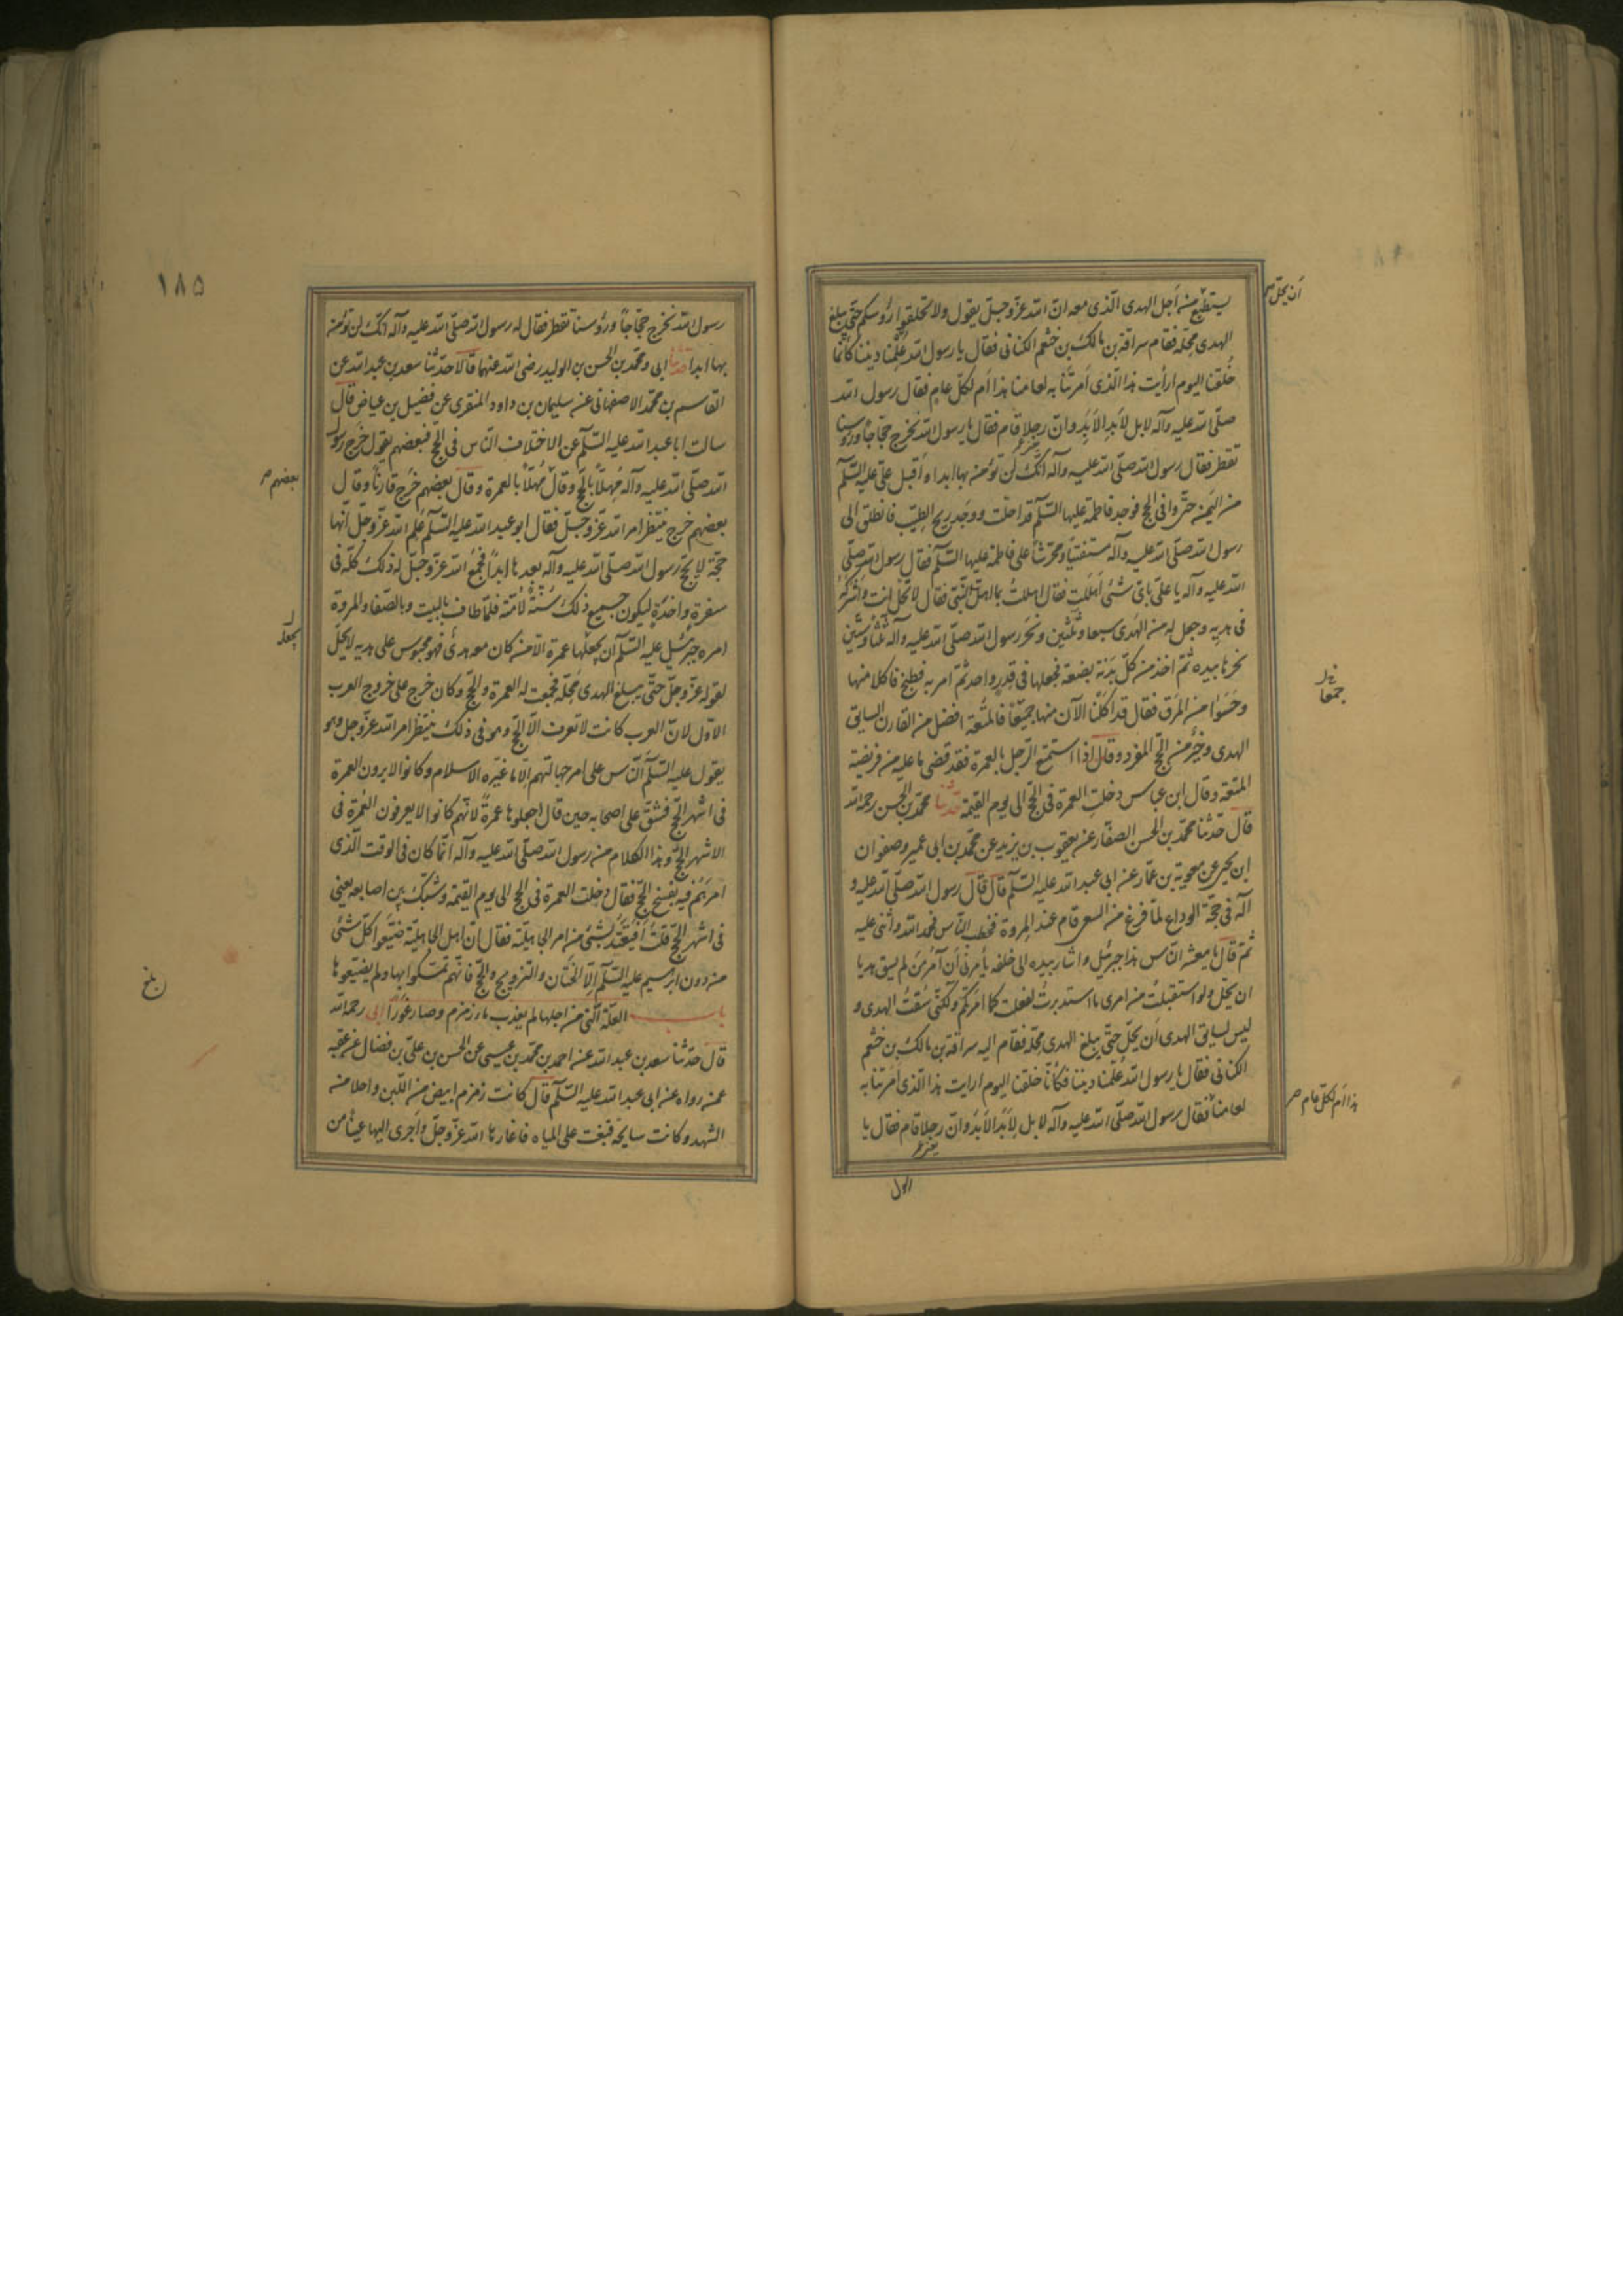 يستطيع من أجل الهدى الّذى معه ان الله عزّ وجلّ يقول ولا تحلقوا رؤسكم حتّى يبلغ
أن يحلّ
الهدى محلّه فقام سراقة بن مالك بن خثعم الكنانى فقال يا رسول الله علّمنا ديننا كانّما
خلقنا اليوم ارأيت هذا الّذى أمرتنا به لعامنا هذا أم لكلّ عام فقال رسول الله
صلّى الله عليه وآله لا بل لأبد الأبد وانّ رجلا قام فقال يا رسول الله نخرج حجّاجا ورؤسنا
تقطر فقال رسول الله صلّى الله عليه وآله انّك لن تؤمن بها ابدا واقبل علىّ عليه السّلم
من اليمن حتّى وافى الحج فوجد فاطمة عليها السّلم قد احلّت ووجد ريح الطيب فانطلق الى
رسول الله صلّى الله عليه وآله مستفتيا ومحرّشا على فاطمة عليها السّلم فقال رسول الله صلّى
الله عليه وآله يا علىّ باىّ شئ أهللت فقال اهللت بما اهلّ النّبى فقال لا تحلّ انت واشركه
فى هديه وجعل له من الهدى سبعا وثلثين ونحر رسول الله صلّى الله عليه وآله ثلثا وستّين
نحرها بيده ثمّ اخذ من كلّ بدنة بضعة فجعلها فى قدر واحد ثمّ امر به فطبخ فاكلا منها
وحسوا من المرق فقال قد اكلنا الآن منها جميعا فالمتعة افضل من القارن السايق
جمعا
الهدى وخير من الحجّ المفرد وقال اذا استمتع الرّجل بالعمرة فقد قضى ما عليه من فريضة
المتعة وقال ابن عباس دخلت العمرة فى الحجّ الى يوم القيمة حدّثنا محمّد بن الحسن رحمه الله
قال حدّثنا محمّد بن الحسن الصفّار عن يعقوب بن يزيد عن محمّد بن ابى عمير وصفوان
ابن يحيى عن معوية بن عمّار عن ابى عبد الله عليه السّلم قال قال رسول الله صلّى الله عليه و
آله فى حجّة الوداع لمّا فرغ من السعى قام عند المروة فخطب النّاس فحمد الله واثنى عليه
ثمّ قال يا معشر النّاس هذا جبرئيل واشار بيده الى خلفه يأمرنى أن آمر من لم يسق هديا
ان يحلّ ولو استقبلت من امرى ما استدبرت لفعلت كما امرتكم ولكنّى سقت الهدى و
ليس لسايق الهدى أن يحلّ حتّى يبلغ الهدى محلّه فقام اليه سراقة بن مالك بن خثعم
الكنانى فقال يا رسول الله علّمنا ديننا فكأنّا خلقنا اليوم ارايت هذا الّذى امرتنا به
لعامنا فقال رسول الله صلّى الله عليه وآله لا بل لأبد الأبد وانّ رجلا قام فقال يا
هذا أم لكلّ عام
١٨۵
رسول الله نخرج حجّاجا ورؤسنا تقطر فقال له رسول الله صلّى الله عليه وآله انّك لن تؤمن
بها ابدا حدّثنا ابى ومحمّد بن الحسن بن الوليد رضى الله عنهما قالا حدّثنا سعد بن عبد الله عن
القاسم بن محمّد الاصفهانى عن سليمان بن داود المنقرى عن فضيل بن عياض قال
سالت ابا عبد الله عليه السّلم عن الاختلاف النّاس فى الحجّ فبعضهم يقول خرج رسول
الله صلّى الله عليه وآله مهلّا بالحجّ وقال مهلّا بالعمرة وقال بعضهم خرج قارنا وقال
بعضهم
بعضهم خرج ينتظر امر الله عزّ وجلّ فقال ابو عبد الله عليه السّلم علم الله عزّ وجلّ انّها
حجّة لا يحجّ رسول الله صلّى الله عليه وآله بعدها ابدا فجمع الله عزّ وجلّ له ذلك كلّه فى
سفرة واحدة ليكون جميع ذلك سنّة لأمّته فلمّا طاف بالبيت وبالصّفا والمروة
امره جبرئيل عليه السّلم أن يجعلها عمرة الّا من كان معه هدى فهو محبوس على هديه لا يحلّ
يجعله
لقوله عزّ وجلّ حتّى يبلغ الهدى محلّه فجمعت له العمرة والحجّ وكان خرج على خروج العرب
الاوّل لانّ العرب كانت لا تعرف الّا الحجّ وهو فى ذلك ينتظر امر الله عزّ وجل وهو
يقول عليه السّلم النّاس على امر جاهليّتهم الّا ما غيّره الاسلام وكانوا لا يرون العمرة
فى اشهر الحجّ فشقّ على اصحابه حين قال اجعلوها عمرة لانّهم كانوا لا يعرفون العمرة فى
الاشهر الحجّ وهذا الكلام من رسول الله صلّى الله عليه وآله انّما كان فى الوقت الّذى
امرهم فيه بفسخ الحجّ فقال دخلت العمرة فى الحج الى يوم القيمة وشبّك بين اصابعه يعنى
فى اشهر الحجّ قلت أفيعتدّ بشئ من امر الجاهليّة فقال انّ اهل الجاهليّة ضيّعوا كلّ شئ
من دون ابرهيم عليه السّلم الّا الختان والتزويج والحجّ فانّهم تمسّكوا بها ولم يضيّعوها
بلغ
باب العلّة الّتى من اجلها لم يعذب ماء زمزم وصار غورا ابى رحمه الله
قال حدّثنا سعد بن عبد الله عن احمد بن محمّد بن عيسى عن الحسن بن علىّ بن فضّال عن عقبه
عمن رواه عن ابى عبد الله عليه السّلم قال كانت زمزم ابيض من اللّبن واحلا من
الشهد وكانت سايحة فبغت على المياه فاغارها الله عزّ وجلّ وأجرى اليها عينا من